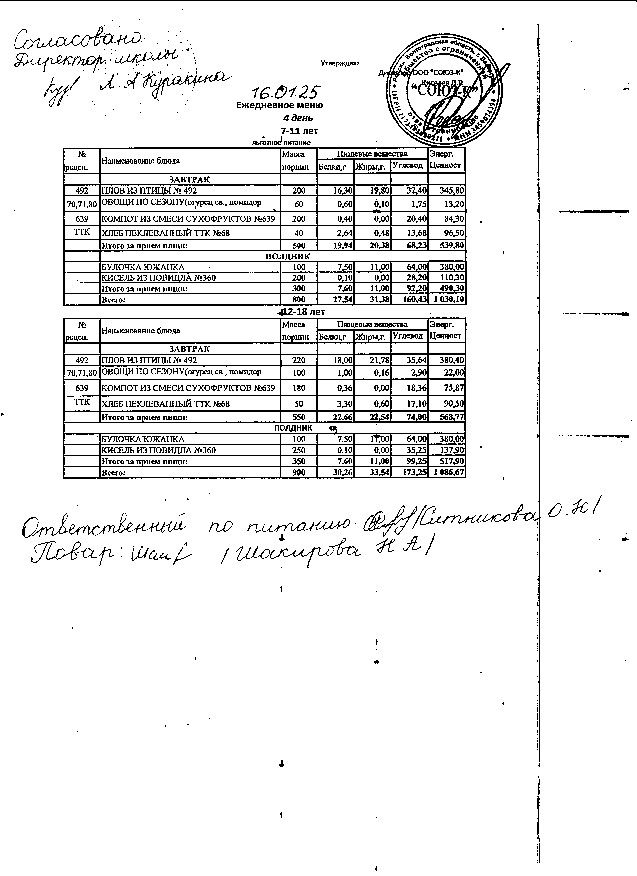 Согласовано
Директор школы
Л. А Куракина
Утверждаю
Директор ООО "СОЮЗ-К"
"СОЮЗ-К"
16.01.25
Ежедневное меню
4 день
7-11 лет
льготное питание
№ рецеп. Наименование блюда Масса порции Пищевые вещества Энерг. Ценност
Белки,г Жиры,г Углевод
ЗАВТРАК
492 ПЛОВ ИЗ ПТИЦЫ № 492 200 16,30 19,80 32,40 345,80
70,71,80 ОВОЩИ ПО СЕЗОНУ(огурец св., помидор 60 0,60 0,10 1,75 13,20
639 КОМПОТ ИЗ СМЕСИ СУХОФРУКТОВ №639 200 0,40 0,00 20,40 84,30
ТТК ХЛЕБ ПЕКЛЕВАННЫЙ ТТК №68 40 2,64 0,48 13,68 96,50
Итого за прием пищи: 500 19,94 20,38 68,23 539,80
ПОЛДНИК
БУЛОЧКА ЮЖАНКА 100 7,50 11,00 64,00 380,00
КИСЕЛЬ ИЗ ПОВИДЛА №360 200 0,10 0,00 28,20 110,30
Итого за прием пищи: 300 7,60 11,00 92,20 490,30
Всего: 800 27,54 31,38 160,43 1 030,10
12-18 лет
№ рецеп. Наименование блюда Масса порции Пищевые вещества Энерг. Ценност
Белки,г Жиры,г Углевод
ЗАВТРАК
492 ПЛОВ ИЗ ПТИЦЫ № 492 220 18,00 21,78 35,64 380,40
70,71,80 ОВОЩИ ПО СЕЗОНУ(огурец св., помидор 100 1,00 0,16 2,90 22,00
639 КОМПОТ ИЗ СМЕСИ СУХОФРУКТОВ №639 180 0,36 0,00 18,36 75,87
ТТК ХЛЕБ ПЕКЛЕВАННЫЙ ТТК №68 50 3,30 0,60 17,10 90,50
Итого за прием пищи: 550 22,66 22,54 74,00 568,77
ПОЛДНИК
БУЛОЧКА ЮЖАНКА 100 7,50 11,00 64,00 380,00
КИСЕЛЬ ИЗ ПОВИДЛА №360 250 0,10 0,00 35,25 137,90
Итого за прием пищи: 350 7,60 11,00 99,25 517,90
Всего: 900 30,26 33,54 173,25 1 086,67
Ответственный по питанию /Ситникова О.Н/
Повар: /Шакирова Н А/